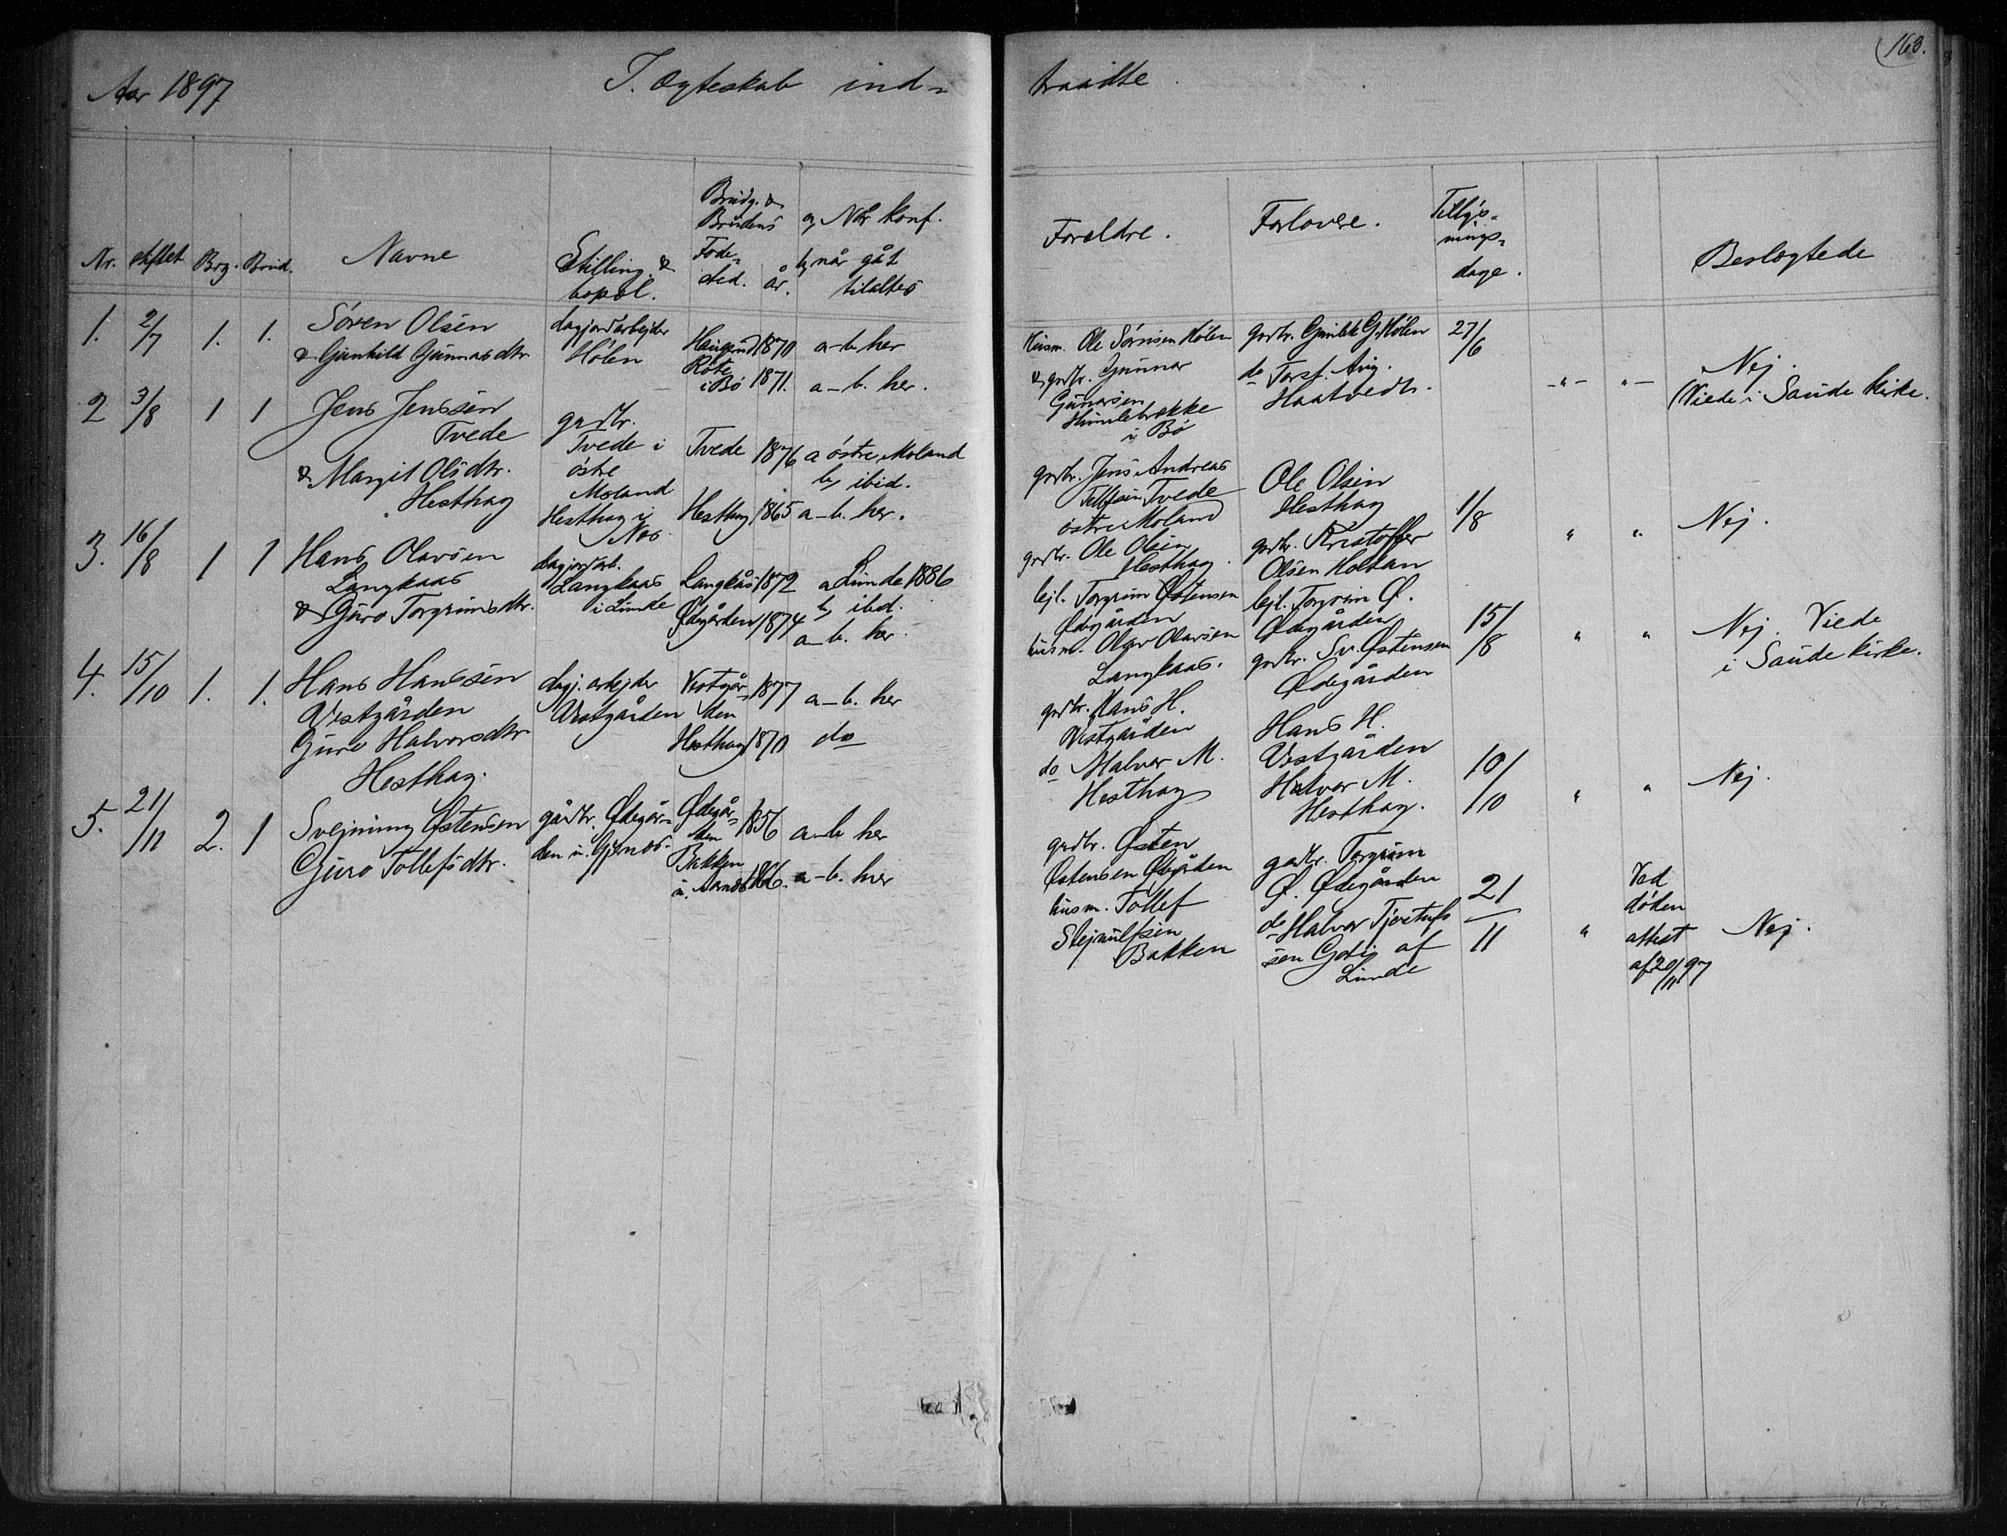 Aar 1897 I. Ægteskab ind-
traadte. 163.
Nr. stiftet Brg. Brud. Navne Stilling & bopæl. Brudg. & Brudens Føde- sted. år. a, Når konf. b, når gåt tilalters
Forældre. Forlovere. Tillys- nings- dage. Beslægtede
1. 2/7 1. 1. Søren Olsen
& Gunhild Gunnarsdtr.
dagjordarbejder
Hølen
Haugerud 1870 a-b. her
Røte i Bø 1871. a-b. her.
Husm. Ole Sørnsen Hølen
& grdbr. Gunnar
Gunarsen
Humlebrække
i Bø
grdbr. Gunlek G. Hølen
do Torsf. Avg.
Haatvedt.
27/6 -"- "-
Nej.
(Viede i Saude kirke.
2 3/8 1 1 Jens Jenssen
Tvede
& Margit Olsdtr.
Hesthag
grdbr.
Tvede i
østre
Moland
Hesthag i
Nes.
Tvede 1876 a østre Moland
b, ibid.
Hesthag 1865 a-b. her.
grdbr. Jens Andreas
Tellefsen Tvede
østre Moland
grdbr. Ole Olsen
Hesthag.
Ole Olsen
Hesthag
grdbr. Kristoffer
Olsen Holtan
1/8 " " Nej.
3. 16/8 1 1 Hans Olavsen
Langkaas
& Guro Torgrimsdtr.
dagjordarb.
Langkaas
i Lunde
Langkås 1872 a Lunde 1886
b, ibid.
Ødegården 1874 a-b. her.
lejl. Torgrim Østensen
Ødegården
husm. Olav Olavsen
Langkaas.
lejl. Torgrim Ø.
Ødegården
grdbr. Sv. Østensen
Ødegården
15/8 " " Nej. Viede
i Saude kirke.
4. 15/10 1. 1. Hans Hanssen
Vestgården
Guro Halvorsdtr.
Hesthag.
dagj. arbejder
Vestgården
Vestgår- den 1877 a-b. her
Hesthag 1870 do
grdbr. Hans H.
Vestgården
do Halvor M.
Hesthag
Hans H.
Vestgården
Halvor M.
Hesthag.
10/10 " " Nej.
5. 21/11 2. 1 Svejning Østensen
Guro Tollefsdtr.
gårdbr. Ødegår-
den u. Gjernes.
Ødegår- den 1856 a-b her
Bakken
u. Aarnes 1866. a-b. her
grdbr. Østen
Østensen Ødegården
husm. Tollef
Stejnulfsen
Bakken
grdbr. Torgrim
Ø. Ødegården
do Halvor Tjøstufs
sen af
Lunde
21/11 "
Ved
døden
attest
af 20/11 97
Nej.